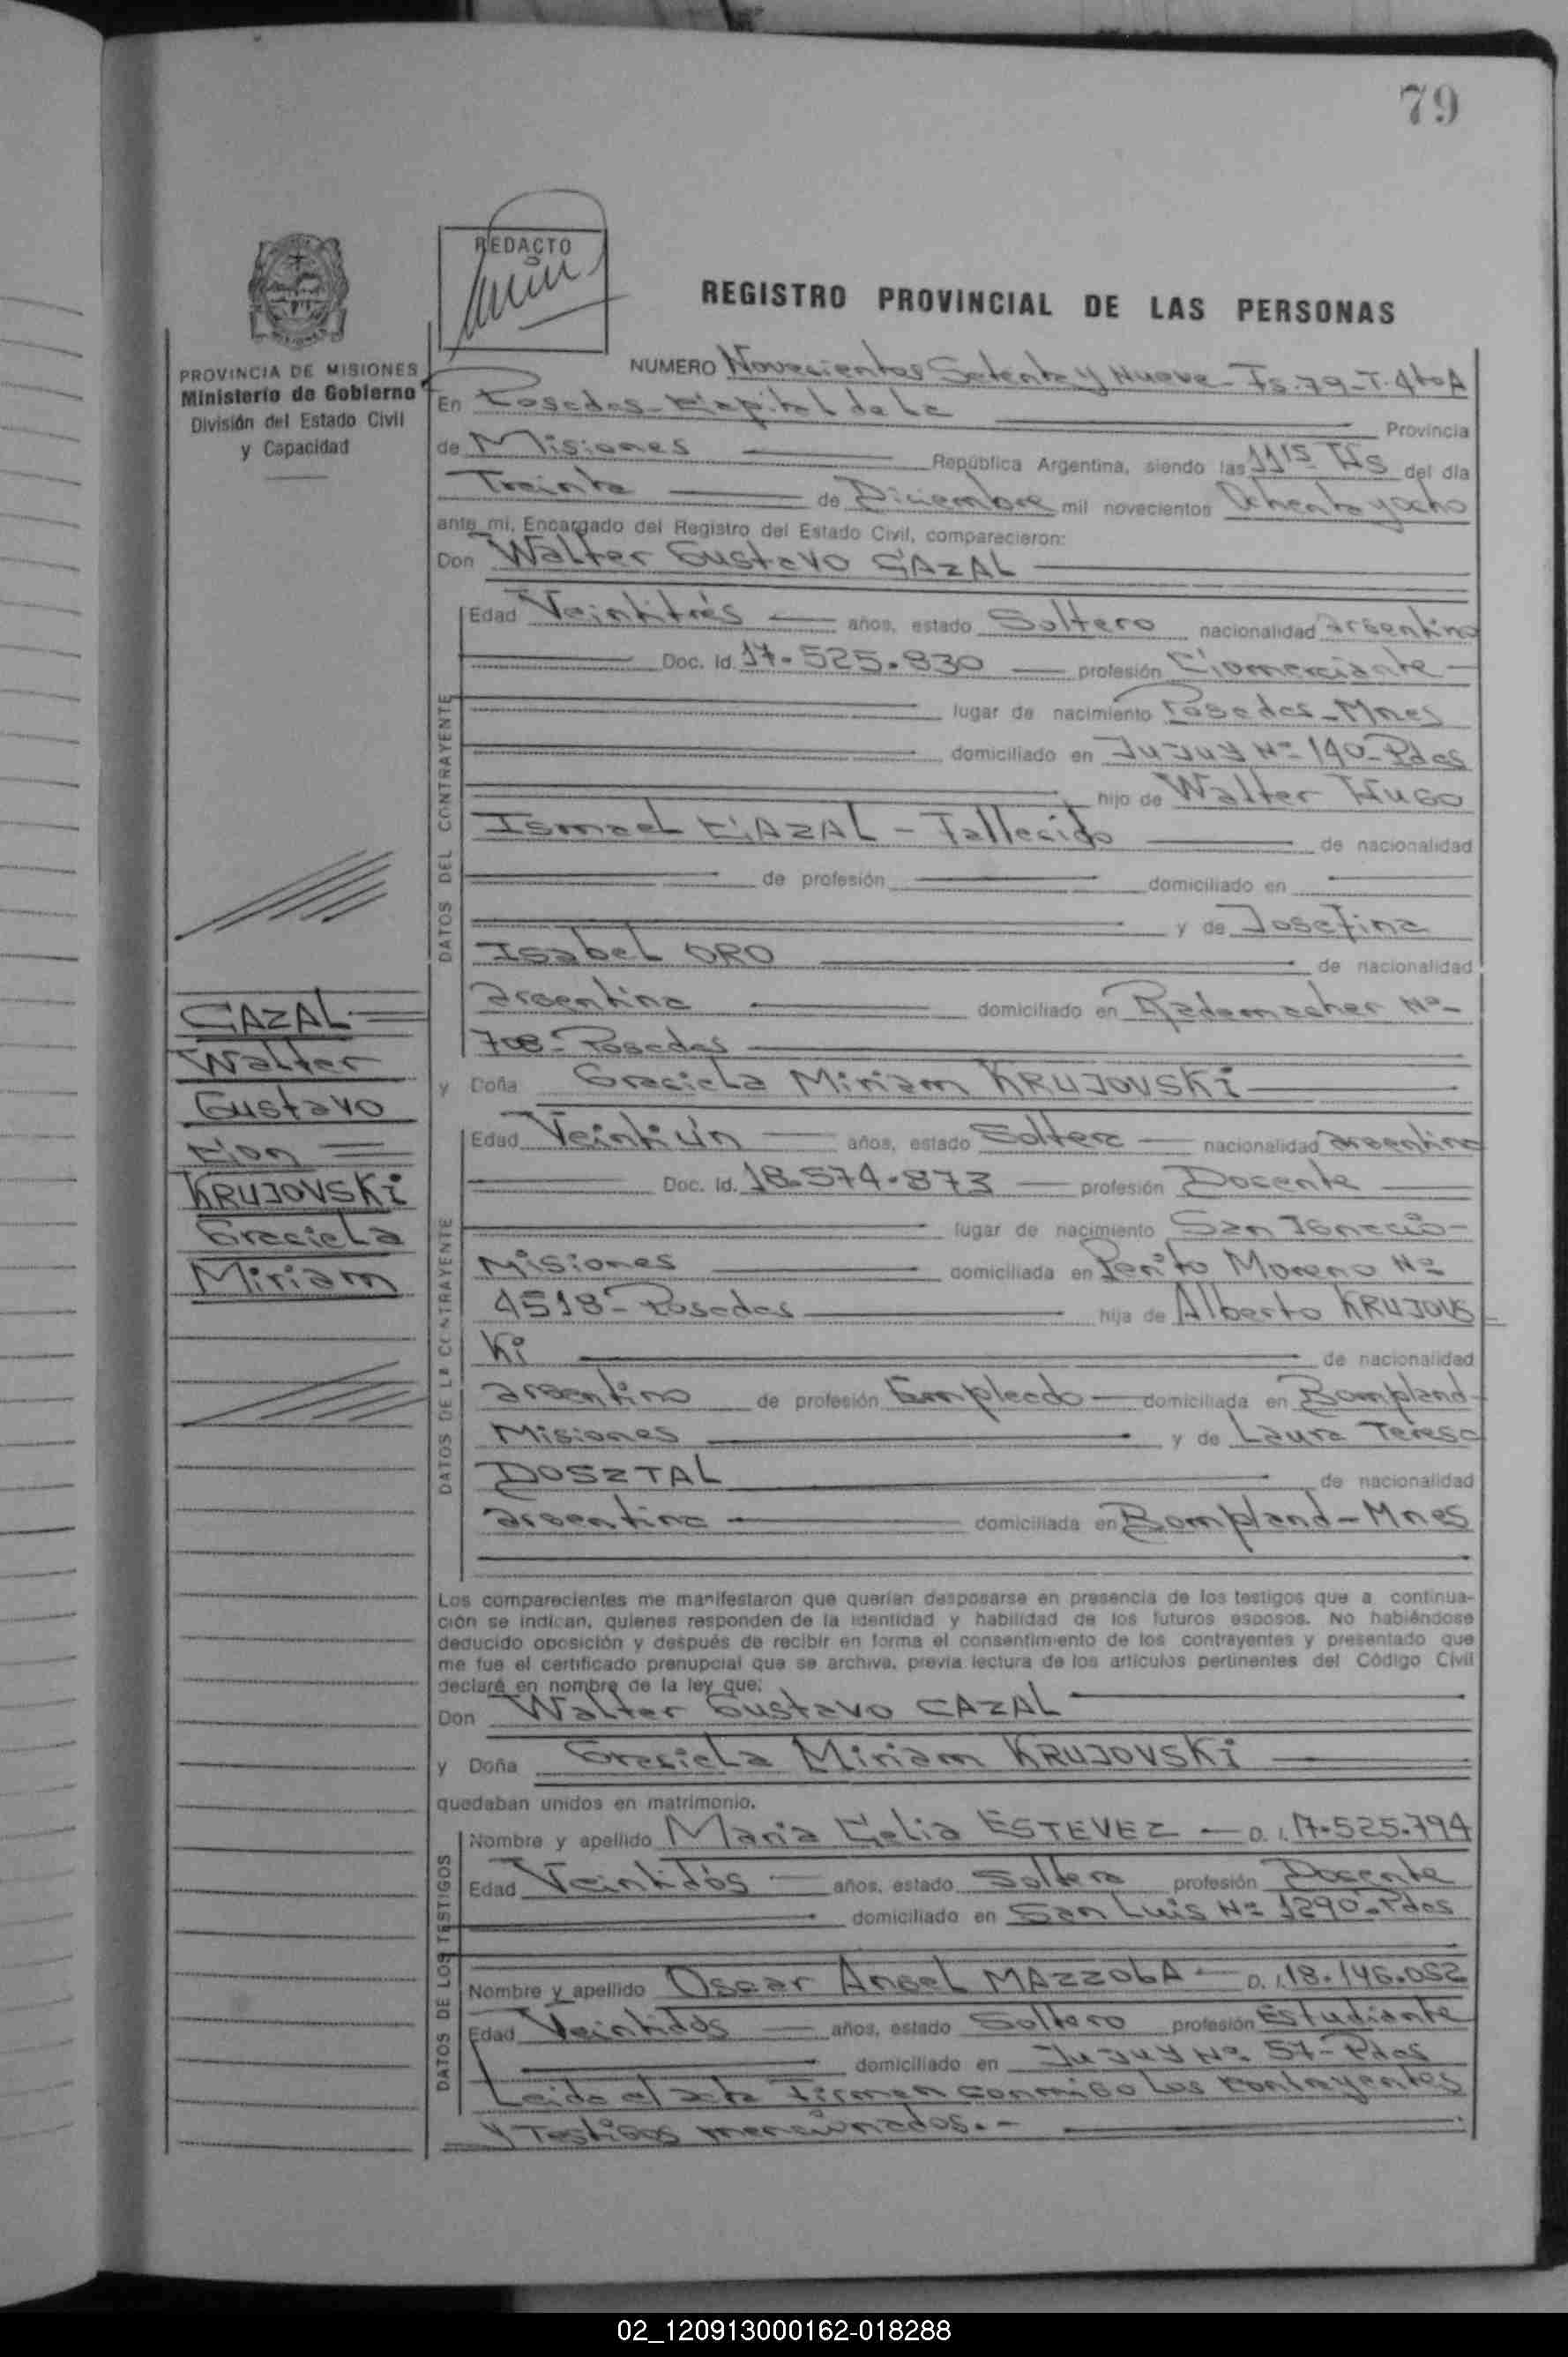 79
REDACTO
REGISTRO PROVINCIAL DE LAS PERSONAS
PROVINCIA DE MISIONES
Ministerio de Gobierno
División del Estado Civil
y Capacidad
NUMERO Novecientos Setenta y Nueve - Fs. 79 - T. 4to A
En Posadas - Capital de la Provincia
de Misiones República Argentina, siendo las 11 15 Hs del día
Treinta de Diciembre mil novecientos Ochenta y ocho
ante mi, Encargado del Registro del Estado Civil, comparecieron:
Don Walter Gustavo CAZAL
DATOS DEL CONTRAYENTE
Edad Veintitrés años, estado Soltero nacionalidad argentino
Doc. Id. 17.525.830 profesión Comerciante
lugar de nacimiento Posadas - Mnes
domiciliado en Jujuy Nº 140 - Pdas
hijo de Walter Hugo
Ismael CAZAL - Fallecido de nacionalidad
de profesión domiciliado en
y de Josefina
Isabel ORO de nacionalidad
argentina domiciliado en Rademacher Nº
708 - Posadas
CAZAL
Walter
Gustavo
Con
KRUJOVSKi
Graciela
Miriam
y Doña Graciela Miriam KRUJOVSKi
DATOS DE LA CONTRAYENTE
Edad Veintiún años, estado Soltera nacionalidad argentina
Doc. Id. 18.574.873 profesión Docente
lugar de nacimiento San Ignacio -
Misiones domiciliada en Perito Moreno Nº
4518 - Posadas hija de Alberto KRUJOVS
Ki de nacionalidad
argentino de profesión Empleado domiciliada en Bompland -
Misiones y de Laura Teresa
DOSZTAL de nacionalidad
argentina domiciliada en Bompland - Mnes
Los comparecientes me manifestaron que querían desposarse en presencia de los testigos que a continua-
ción se indican, quienes responden de la identidad y habilidad de los futuros esposos. No habiéndose
deducido oposición y después de recibir en forma el consentimiento de los contrayentes y presentado que
me fue el certificado prenupcial que se archiva, previa lectura de los artículos pertinentes del Código Civil
declaré en nombre de la ley que:
Don Walter Gustavo CAZAL
y Doña Graciela Miriam KRUJOVSKi
quedaban unidos en matrimonio.
DATOS DE LOS TESTIGOS
Nombre y apellido Maria Celia ESTEVEZ - D. I. 17.525.794
Edad Veintidós años, estado Soltera profesión Docente
domiciliado en San Luis Nº 1290 - Pdas
Nombre y apellido Oscar Angel MAZZOLA - D. I. 18.146.052
Edad Veintidós años, estado Soltero profesión Estudiante
domiciliado en Jujuy Nº 57 - Pdas
Leido el acta Firman conmigo Los contrayentes
y Testigos mencionados. -
02_120913000162-018288